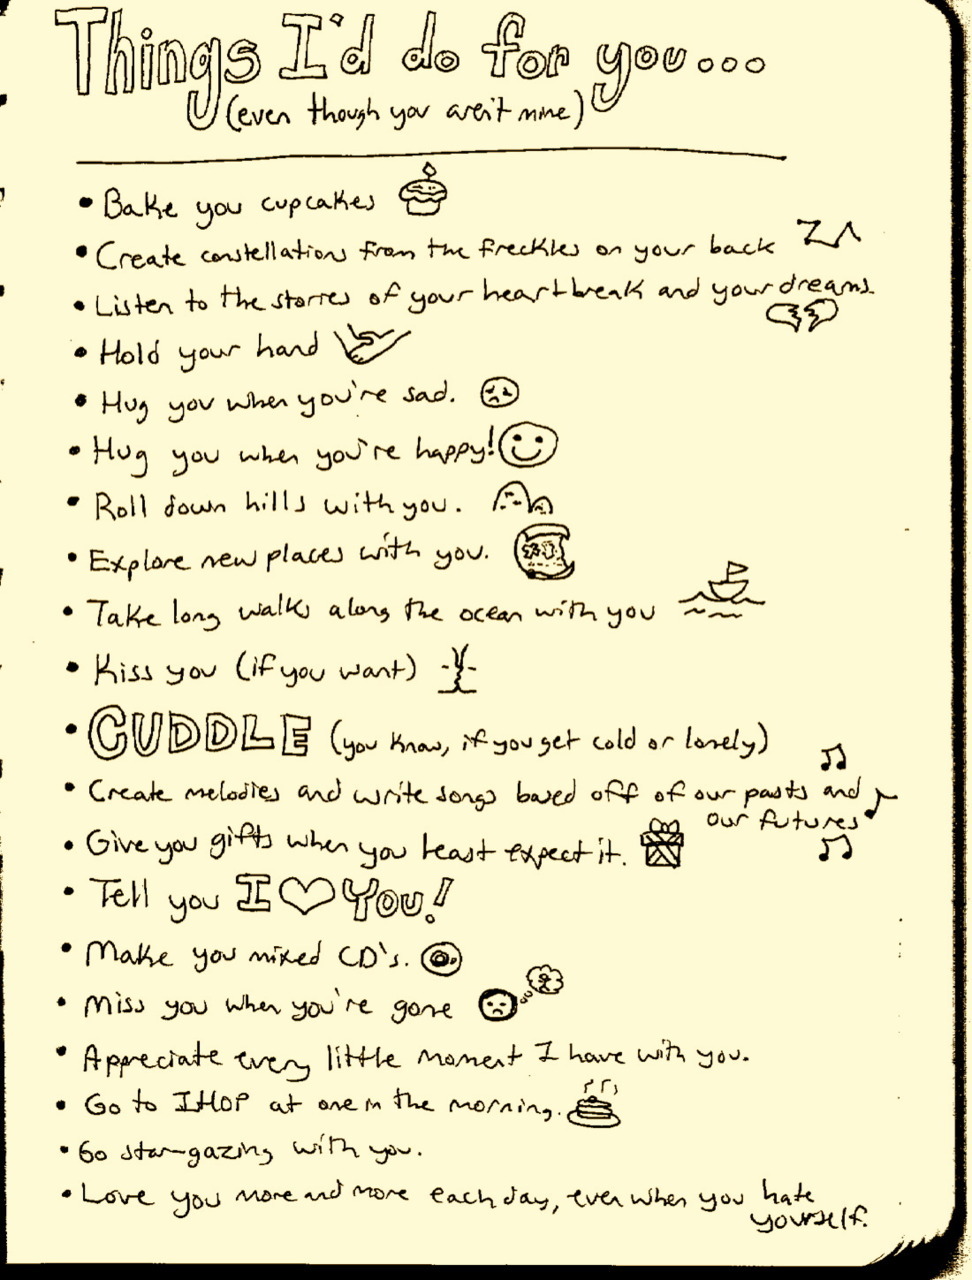 Things I'd do for you...
(even though you aren't mine)
• Bake you cupcakes
• Create constellations from the freckles on your back
• Listen to the stories of your heartbreak and your dreams.
• Hold your hand
• Hug you when you're sad.
• Hug you when you're happy!
• Roll down hills with you.
• Explore new places with you.
• Take long walks along the ocean with you
• Kiss you (if you want)
• CUDDLE (you know, if you get cold or lonely)
• Create melodies and write songs based off of our pasts and
our futures
• Give you gifts when you least expect it.
• Tell you I ♡ You!
• Make you mixed CD's.
• Miss you when you're gone
• Appreciate every little moment I have with you.
• Go to IHOP at one in the morning.
• Go star-gazing with you.
• Love you more and more each day, even when you hate
yourself.